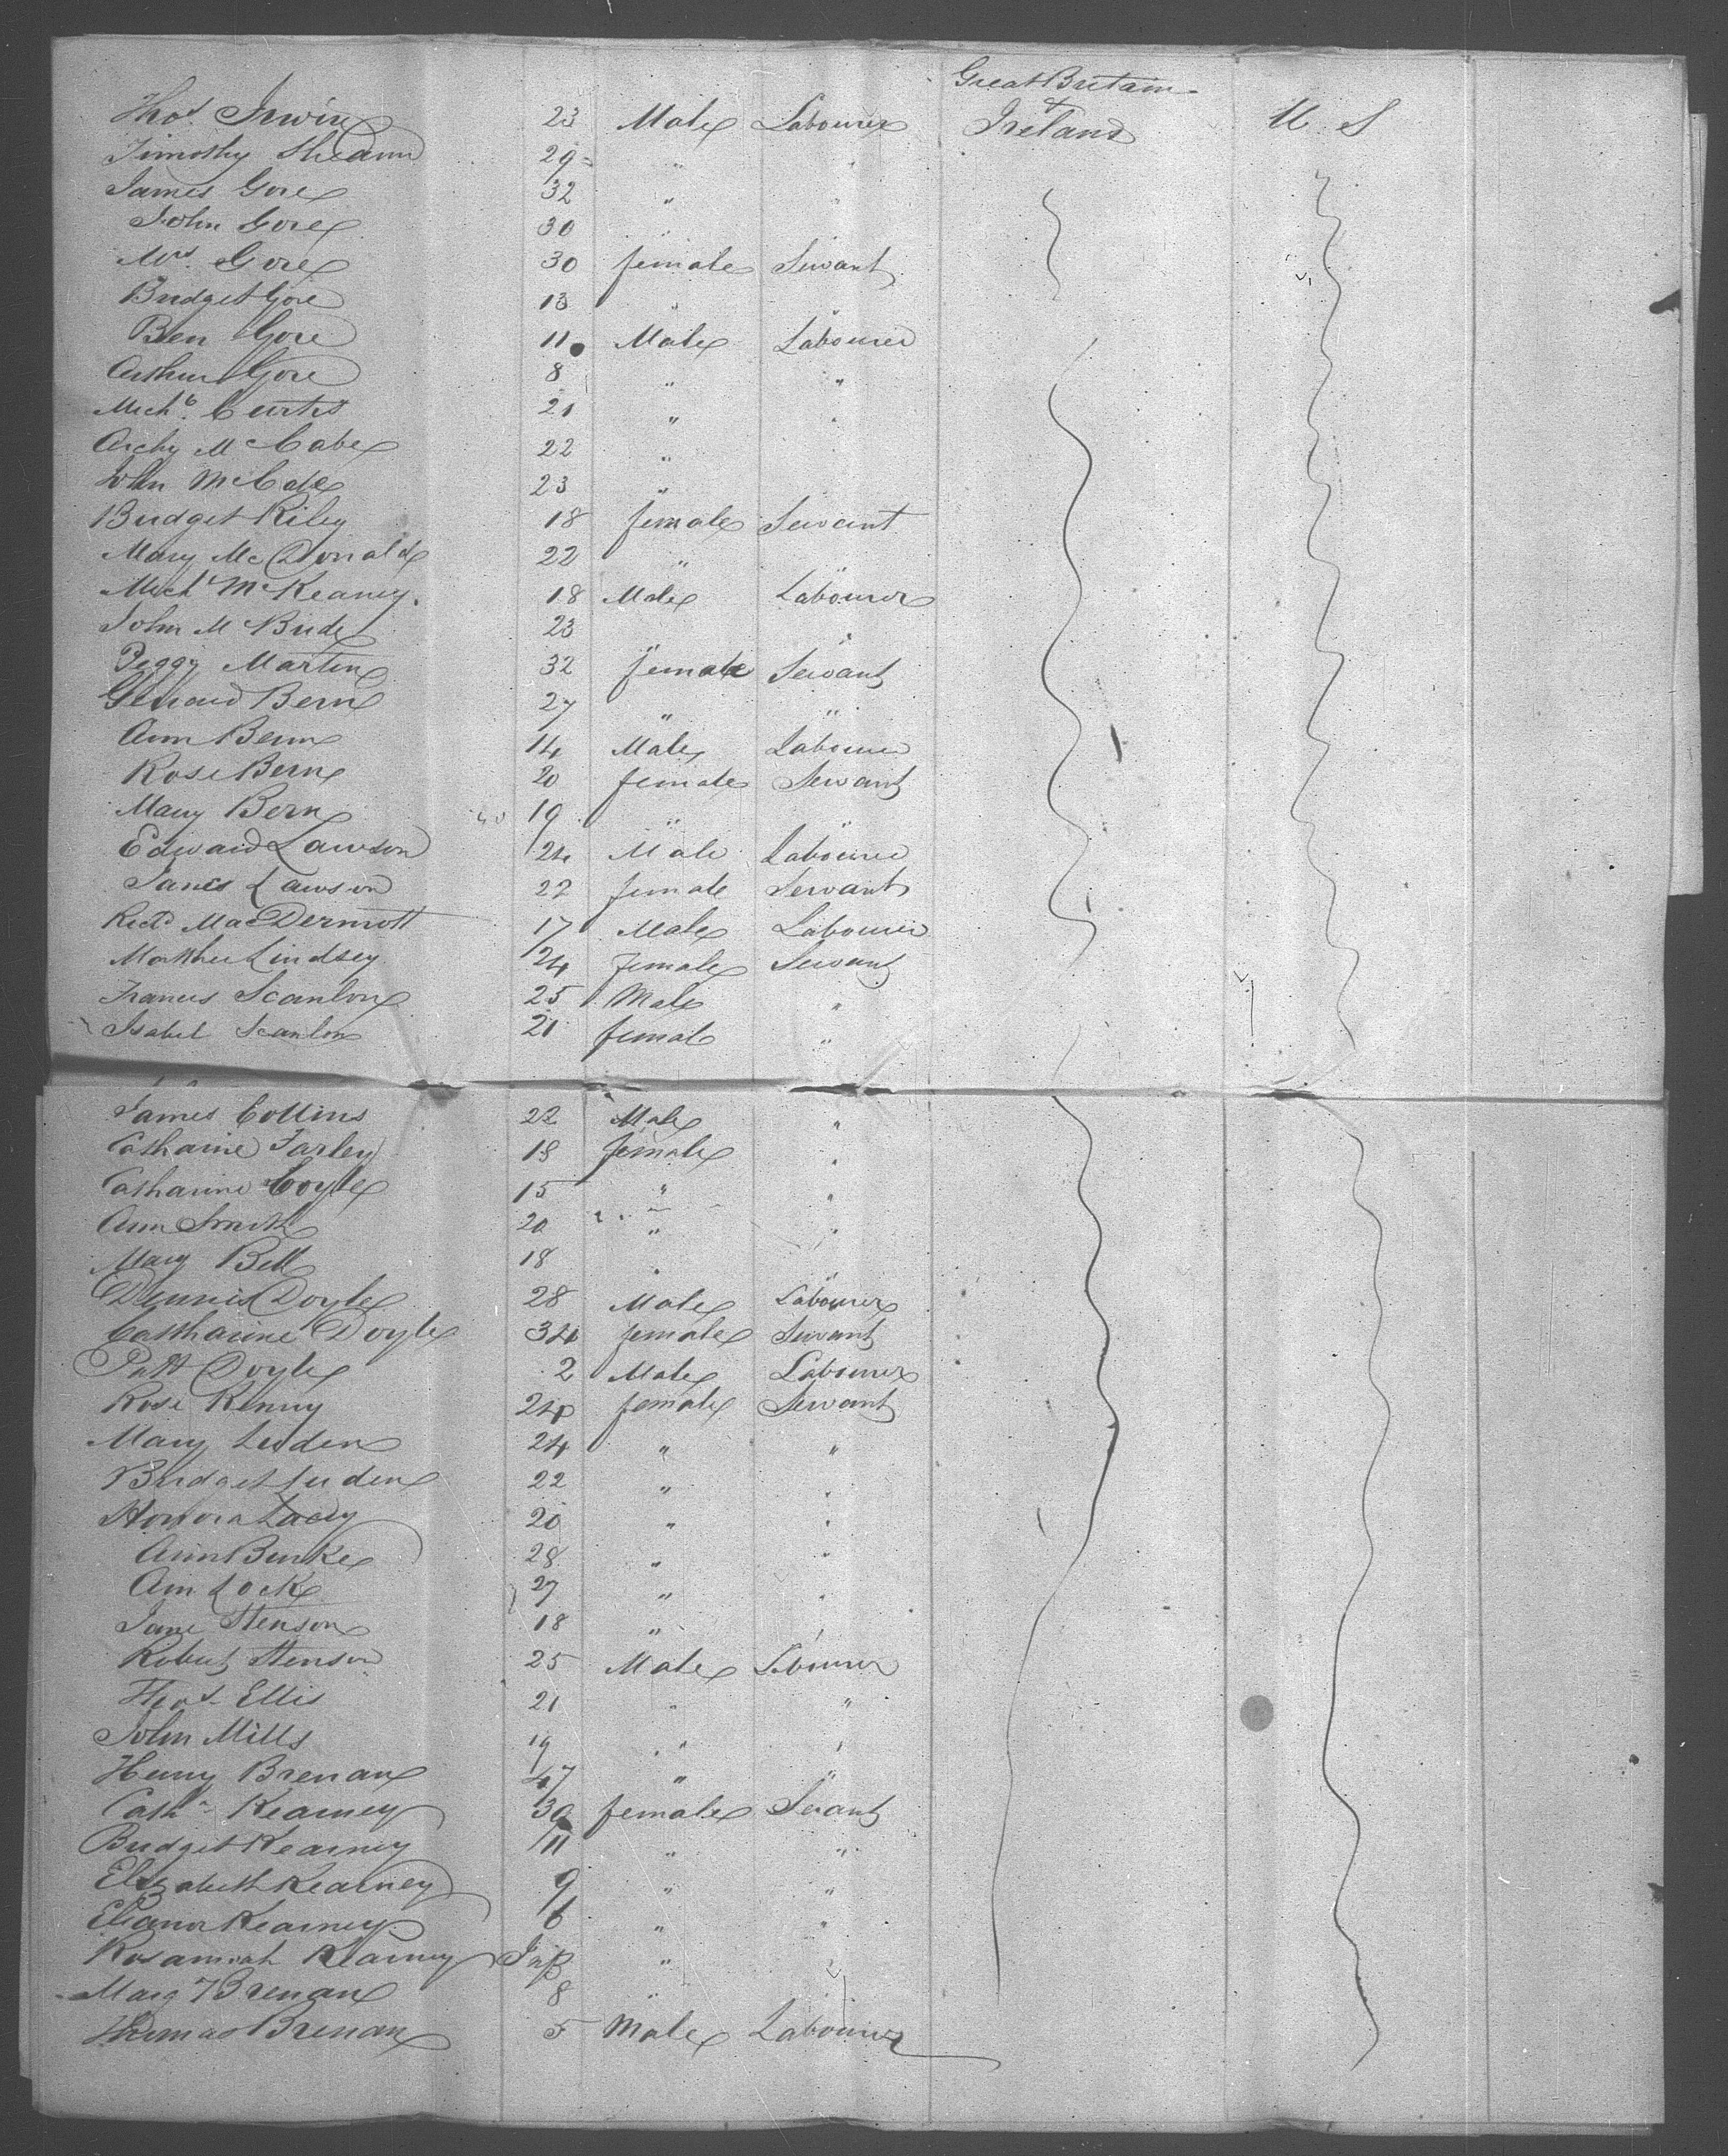 Great Britain
&
Thos. Irwin 23 Male Labourer Ireland U. S
Timothy 29 " "
James Gore 32 " "
John Gore 30 " "
Mrs. Gore 30 female Servant
Bridget Gore 13 " "
Ben Gore 11 Male Labourer
Arthur Gore 8 " "
Michl. Curtis 21 " "
Archy McCabe 22 "
John McCabe 23 " "
Bridget Riley 18 female Servant
Mary McDonald 22 " "
Michl McKeaney 18 Male Labourer
John McBride 23 " "
Peggy Martin 32 female Servant
Gerrard Bern 27 " "
Ann Bern 14 Male Labourer
Rose Bern 20 female Servant
Mary Bern 19 " "
Edward Lawson 24 Male Labourer
Janes Lawson 22 female Servant
Richd MacDermott 17 Male Labourer
Lindsey 24 female Servant
Francis Scanlon 25 Male "
Isabel Scanlon 21 female "
James Collins 22 Male "
Catharine Farley 18 female "
Catharine Coyle 15 " "
Ann Smith 20 " "
Mary Bell 18 " "
Dennis Doyle 28 Male Labourer
Catharine Doyle 34 female Servant
Patt Doyle 2 Male Labourer
Rose Kenny 24 female Servant
Mary Leuden 24 " "
Bridget Luden 22 " "
Honora Lacey 20 " "
Ann Burke 28 " "
Ann Lock 27 " "
Jane Stenson 18 " "
Robert Stenson 25 Male Labourer
Thos. Ellis 21 " "
John Mills 19 " "
Henry Brenan 47 " "
Cathn Kearney 30 female Servant
Bridget Kearney 11 " "
Elizabeth Kearney 9 " "
Eleanor Kearney 6 " "
Rosannah Kearney Inf "
Marg Brenan 8 "
Thomas Brenan 5 Male Labourer